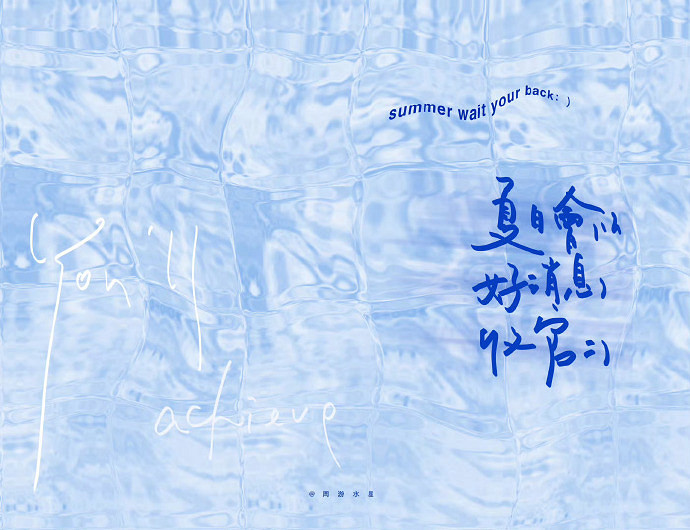 summer wait your back: )
夏日會以
好消息
收官:)
You'll
achieve
@周游水星